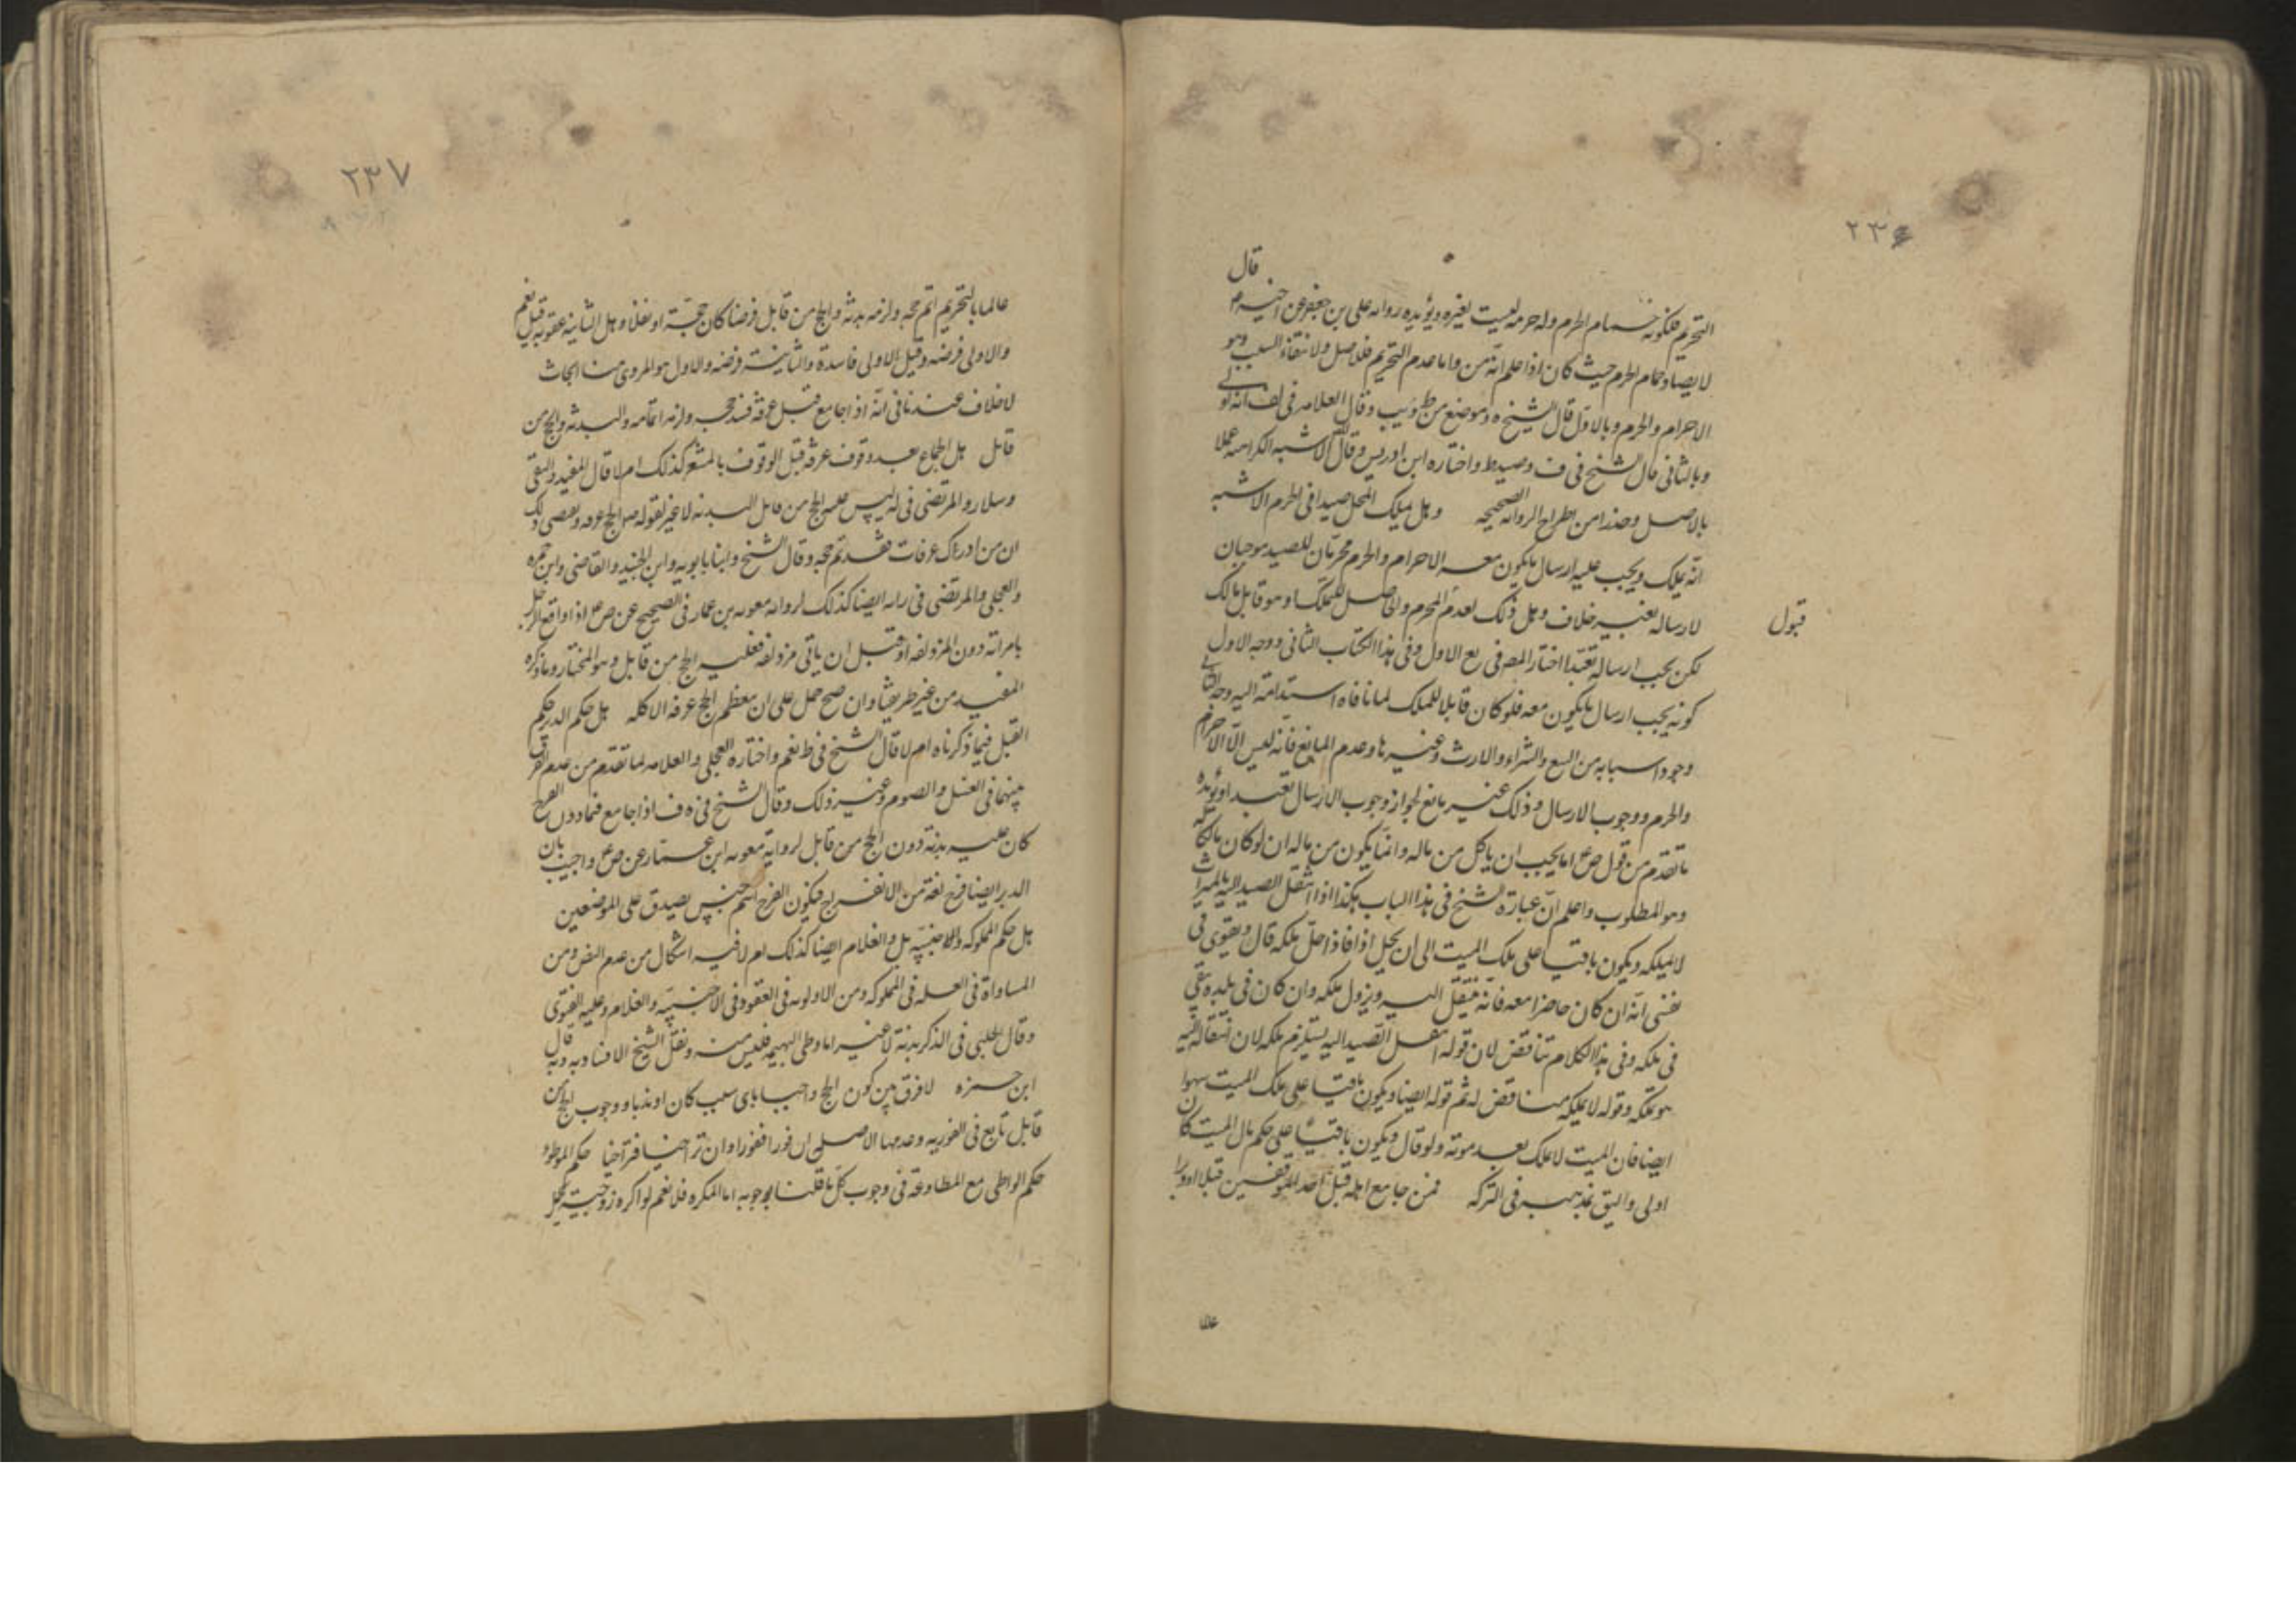 ٢٣۶
قال
التحريم فلكونه حمام الحرم وله حرمة ليست لغيره ويؤيده رواية على بن جعفر عن اخيه م
لا يصاد حمام الحرم حيث كان اذا علم انه من واما عدم التحريم فللاصل ولانتفاء السبب وهو
الاحرام والحرم وبالاول قال الشيخ ره فى موضع من ط ويب وقال العلامه فى لف انه لو
وبالثانى قال الشيخ فى ف وصيد ط واختاره ابن ادريس وقال الاشبه الكراهية عملا
بالاصل وحذرا من اطراح الرواية الصحيحه وهل يملك المحل صيدا فى الحرم الاشبه
انه يملك ويجب عليه ارسال ما يكون معه الاحرام والحرم محرمان للصيد موجبان
لارساله بغير خلاف وهل ذلك لعدم المحرم والحاصل للتملك وهو قابل مالك
قبول
لكن يجب ارساله تعبدا اختار المصه فى يع الاول وفى هذا الكتاب الثانى ووجه الاول
كونه يجب ارسال ما يكون معه فلو كان قابلا للملك لما نافاه استدامته اليه وجه الثانى
وجود اسبابه من البيع والشراء والارث وغيرها وعدم المانع فانه ليس الا الاحرام
والحرم ووجوب الارسال وذلك غير مانع لجواز وجوب الارسال تعبدا ويؤيده
ما تقدم من قول ص ع اما يجب ان ياكل من ماله وانما يكون من ماله ان لو كان مالكا له
وهو المطلوب واعلم ان عبارة الشيخ فى هذا الباب هكذا اذا انتقل الصيد اليه بالميراث
لا يملكه ويكون باقيا على ملك الميت الى ان يحل اذا فاذا احل ملكه قال ويقوى فى
نفسى انه ان كان حاضرا معه فانه ينتقل اليه ويزول ملكه وان كان فى بلده يبقى
فى ملكه وفى هذا الكلام تناقض لان قوله انتقل الصيد اليه يستلزم ملكه لان انتقاله اليه
هو تملكه وقوله لا يملكه مناقض له ثم قوله ايضا ويكون باقيا على ملك الميت سهوا
ايضا فان الميت لا يملك بعد موته ولو قال ويكون باقيا على حكم مال الميت كان
اولى واليق بمذهبه فى التركه فمن جامع اهله قبل احد الموقفين قبلا او دبرا
عالما
٢٣٧
عالما بالتحريم اتم حجه ولزمه بدنة والحج من قابل فرضا كان حجة او نفلا وهل الثانيه عقوبة قيل نعم
والاولى فرضه وقيل الاولى فاسدة والثانية فرضه والاول هو المروى هنا ابحاث
لا خلاف عندنا فى انه اذا جامع قبل عرفة فسد حجه ولزمه اتمامه والبدنة والحج من
قابل هل الجماع بعد وقوف عرفة قبل الوقوف بالمشعر كذلك ام لا قال المفيد والتقى
وسلار والمرتضى فى ليس عليه الحج من قابل البدنه لا غير لقوله ص الحج عرفه ويعضى ذلك
ان من ادراك عرفات فقد تم حجه وقال الشيخ وابنا بابويه وابن الجنيد والقاضى وابن حمزه
والعجلى والمرتضى فى ايضا كذلك لرواية معويه بن عمار فى الصحيح عن ص ع اذا واقع الرجل
بامراته دون المزدلفه او قبل ان ياتى مزدلفه فعليه الحج من قابل وهو المختار وما ذكره
المفيد من غير طريقنا وان صح حمل على ان معظم الحج عرفه لا كله هل حكم الدبر حكم
القبل فيما ذكرناه ام لا قال الشيخ فى ط نعم واختاره العجلى والعلامه لما تقدم من عدم الفرق
بينهما فى الغسل والصوم وغير ذلك وقال الشيخ فى ه ف اذا جامع فيما دون الفرج
كان عليه بدنة دون الحج من قابل لرواية معويه ابن عمار عن ص ع واجيب بان
الدبر ايضا فرج لغة من الانفراج فيكون الفرج اسم جنس يصدق على الموضعين
هل حكم المملوكه والاجنبيه بل والغلام ايضا كذلك ام لا فيه اشكال من عدم النص ومن
المساواة فى العله فى المملوكه ومن الاولويه فى العقود فى الاجنبيه والغلام وعليه الفتوى
وقال الحلبى فى الذكر بدنة لا غير اما وطى البهيمه فليس منه ونقل الشيخ الافساد به وبه قال
ابن حمزه لا فرق بين كون الحج واجبا باى سبب كان او ندبا ووجوب الحج من
قابل تابع فى الفوريه وعدمها الاصلى ان فورا ففورا وان تراخيا فتراخيا حكم الموطوء
حكم الواطى مع المطاوعة فى وجوب كل ما قلنا بوجوبه اما المكره فلا نعم لو اكره زوجته تحمل